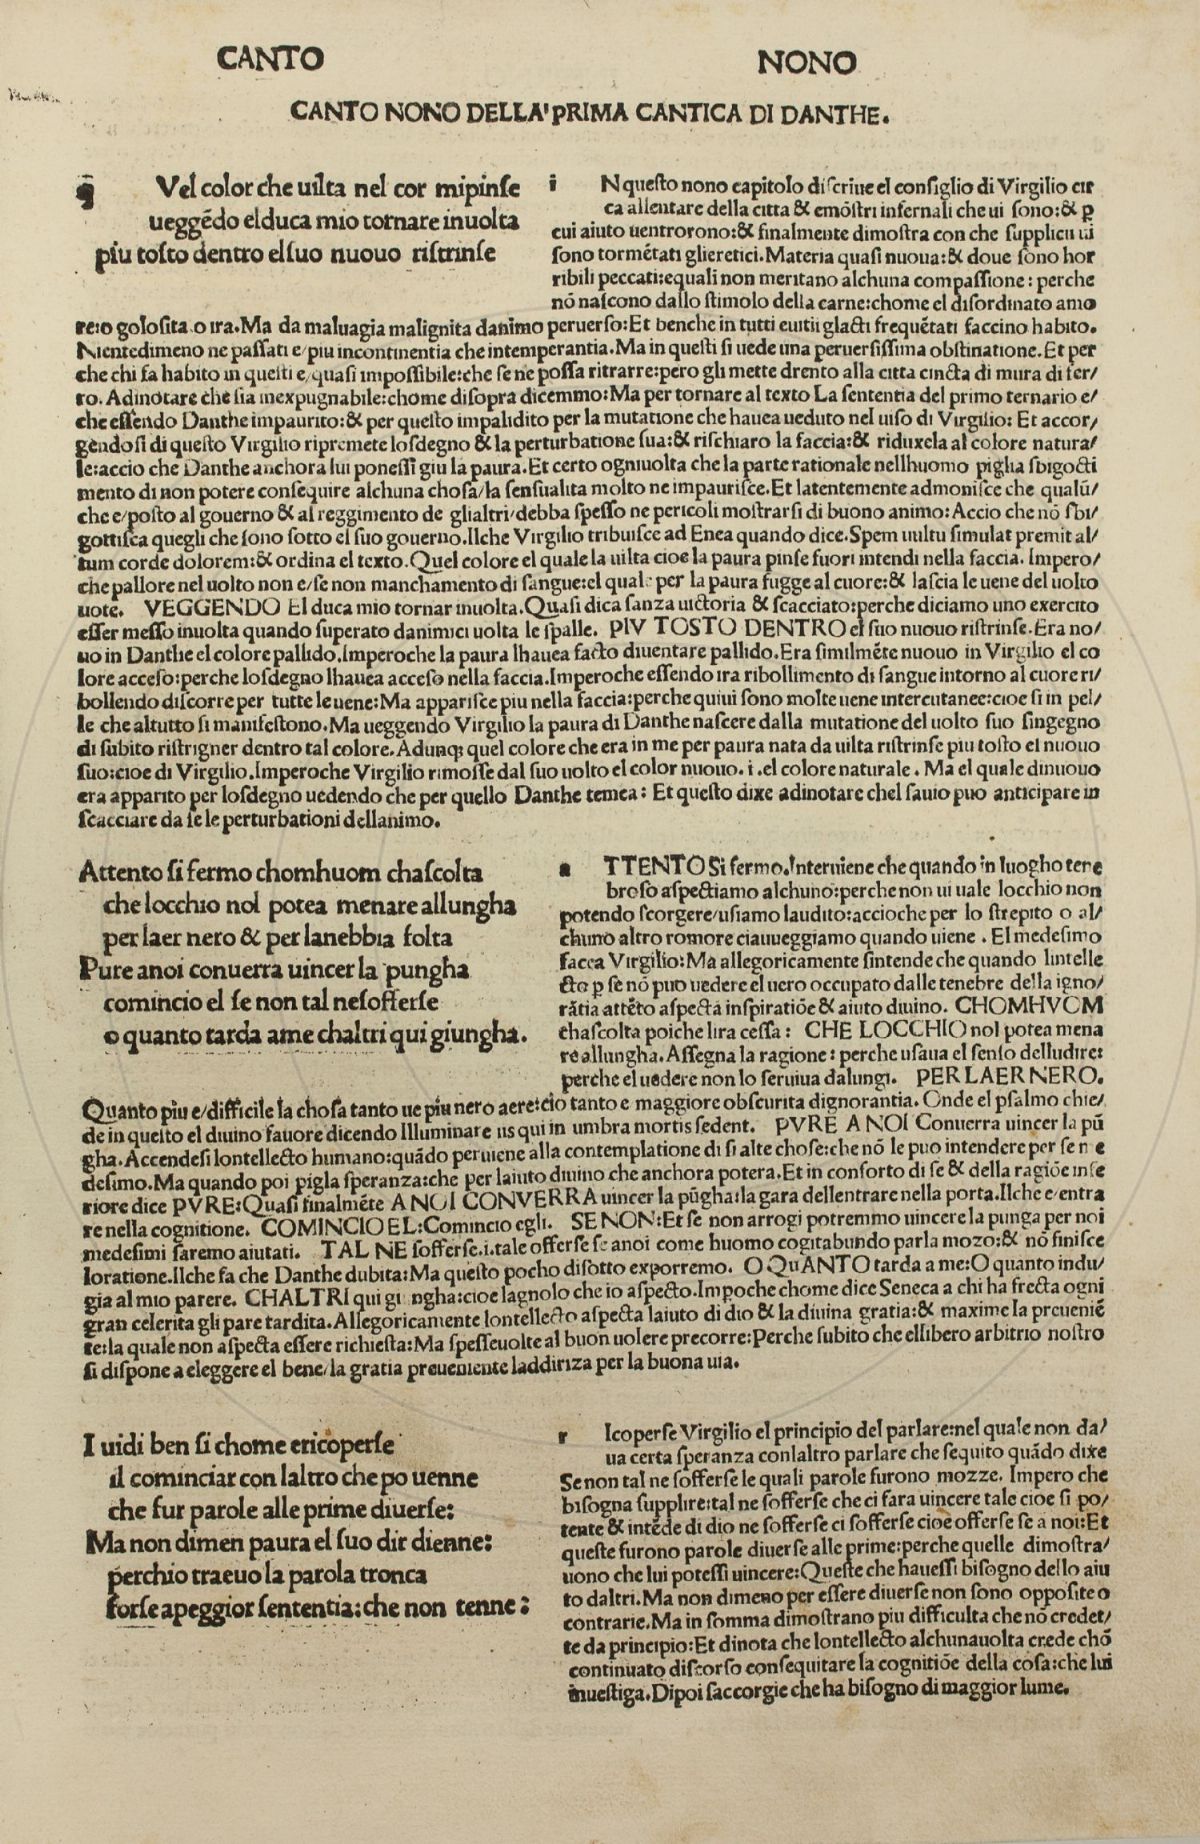 CANTO NONO
CANTO NONO DELLA' PRIMA CANTICA DI DANTHE.
q Vel color che uilta nel cor mipinſe
ueggēdo elduca mio tornare inuolta
piu toſto dentro elſuo nuouo riſtrinſe
i N queſto nono capitolo diſcriue el conſiglio di Virgilio cir
ca allentare della citta & emōſtri infernali che ui ſono:& ꝑ
cui aiuto uentrorono:& finalmente dimoſtra con che ſupplicii ui
ſono tormētati glieretici.Materia quaſi nuoua:& doue ſono hor
ribili peccati:equali non meritano alchuna compaſſione: perche
nō naſcono dallo ſtimolo della carne:chome el diſordinato amo
re:o goloſita o ira.Ma da maluagia malignita danimo peruerſo:Et benche in tutti euitii glacti frequētati faccino habito.
Nientedimeno ne paſſati e/piu incontinentia che intemperantia.Ma in queſti ſi uede una peruerſiſſima obſtinatione.Et per
che chi fa habito in queſti e/quaſi impoſſibile:che ſe ne poſſa ritrarre:pero gli mette drento alla citta cincta di mura di fer/
ro.Adinotare che ſia inexpugnabile:chome diſopra dicemmo:Ma per tornare al texto La ſententia del primo ternario e/
che eſſendo Danthe impaurito:& per queſto impalidito per la mutatione che hauea ueduto nel uiſo di Virgilio: Et accor/
gēdoſi di queſto Virgilio ripremete loſdegno & la perturbatione ſua:& riſchiaro la faccia:& riduxela al colore natura/
le:accio che Danthe anchora lui poneſſi giu la paura.Et certo ogniuolta che la parte rationale nellhuomo piglia ſbigocti
mento di non potere conſequire alchuna choſa/la ſenſualita molto ne impauriſce.Et latentemente admoniſce che qualū/
che e/poſto al gouerno & al reggimento de glialtri/debba ſpeſſo ne pericoli moſtrarſi di buono animo: Accio che nō ſbi/
gottiſca quegli che ſono ſotto el ſuo gouerno.Ilche Virgilio tribuiſce ad Enea quando dice.Spem uultu ſimulat premit al/
tum corde dolorem:& ordina el texto.Quel colore el quale la uilta cioe la paura pinſe fuori intendi nella faccia. Impero/
che pallore nel uolto non e/ſe non manchamento di ſangue:el quale per la paura fugge al cuore:& laſcia le uene del uolto
uote. VEGGENDO El duca mio tornar inuolta.Quaſi dica ſanza uictoria & ſcacciato:perche diciamo uno exercito
eſſer meſſo inuolta quando ſuperato danimici uolta le ſpalle. PIV TOSTO DENTRO el ſuo nuouo riſtrinſe.Era no/
uo in Danthe el colore pallido.Imperoche la paura lhauea facto diuentare pallido.Era ſimilmēte nuouo in Virgilio el co
lore acceſo:perche loſdegno lhauea acceſo nella faccia.Imperoche eſſendo ira ribollimento di ſangue intorno al cuore ri/
bollendo diſcorre per tutte le uene:Ma appariſce piu nella faccia:perche quiui ſono molte uene intercutanee:cioe ſi in pel/
le che altutto ſi manifeſtono.Ma ueggendo Virgilio la paura di Danthe naſcere dalla mutatione del uolto ſuo ſingegno
di ſubito riſtrigner dentro tal colore.Adunq; quel colore che era in me per paura nata da uilta riſtrinſe piu toſto el nuouo
ſuo:cioe di Virgilio.Imperoche Virgilio rimoſſe dal ſuo uolto el color nuouo. i .el colore naturale . Ma el quale dinuouo
era apparito per loſdegno uedendo che per quello Danthe temea: Et queſto dixe adinotare chel ſauio puo anticipare in
ſcacciare da ſe le perturbationi dellanimo.
Attento ſi fermo chomhuom chaſcolta
che locchio nol potea menare allungha
per laer nero & per lanebbia folta
Pure anoi conuerra uincer la pungha
comincio el ſe non tal neſofferſe
o quanto tarda ame chaltri qui giungha.
a TTENTO Si fermo.Interuiene che quando in luogho tene
broſo aſpectiamo alchuno:perche non ui uale locchio non
potendo ſcorgere/uſiamo laudito:accioche per lo ſtrepito o al/
chuno altro romore ciauueggiamo quando uiene . El medeſimo
facea Virgilio:Ma allegoricamente ſintende che quando lintelle
cto ꝑ ſe nō puo uedere el uero occupato dalle tenebre della igno/
rātia attēto aſpecta inſpiratiōe & aiuto diuino. CHOMHVOM
chaſcolta poiche lira ceſſa: CHE LOCCHIO nol potea mena
re allungha.Aſſegna la ragione: perche uſaua el ſenſo delludire:
perche el uedere non lo ſeruiua dalungi. PER LAER NERO.
Quanto piu e/difficile la choſa tanto ue piu nero aere:cio tanto e maggiore obſcurita dignorantia. Onde el pſalmo chie/
de in queſto el diuino fauore dicendo Illuminare iis qui in umbra mortis ſedent. PVRE A NOI Conuerra uincer la pū
gha.Accendeſi lontellecto humano:quādo peruiene alla contemplatione di ſi alte choſe:che nō le puo intendere per ſe me
deſimo.Ma quando poi pigla ſperanza:che per laiuto diuino che anchora potera.Et in conforto di ſe & della ragiōe infe
riore dice PVRE:Quaſi finalmēte A NOI CONVERRA uincer la pūgha:la gara dellentrare nella porta.Ilche e/entra
re nella cognitione. COMINCIO EL:Comincio egli. SE NON:Et ſe non arrogi potremmo uincere la punga per noi
medeſimi ſaremo aiutati. TAL NE ſofferſe.i.tale offerſe ſe anoi come huomo cogitabundo parla mozo:& nō finiſce
loratione.Ilche fa che Danthe dubita:Ma queſto pocho diſotto exporremo. O QuANTO tarda a me:O quanto indu/
gia al mio parere. CHALTRI qui giungha:cioe lagnolo che io aſpecto.Impoche chome dice Seneca a chi ha frecta ogni
gran celerita gli pare tardita.Allegoricamente lontellecto aſpecta laiuto di dio & la diuina gratia:& maxime la preueniē
te:la quale non aſpecta eſſere richieſta:Ma ſpeſſeuolte al buon uolere precorre:Perche ſubito che ellibero arbitrio noſtro
ſi diſpone a eleggere el bene/la gratia preueniente laddiriza per la buona uia.
I uidi ben ſi chome ericoperſe
il cominciar con laltro che po uenne
che fur parole alle prime diuerſe:
Ma non dimen paura el ſuo dir dienne:
perchio traeuo la parola tronca
forſe apeggior ſententia:che non tenne:
r Icoperſe Virgilio el principio del parlare:nel quale non da/
ua certa ſperanza conlaltro parlare che ſequito quādo dixe
Se non tal ne ſofferſe le quali parole furono mozze. Impero che
biſogna ſupplire:tal ne ſofferſe che ci fara uincere tale cioe ſi po/
tente & intēde di dio ne ſofferſe ci ſofferſe cioe offerſe ſe a noi:Et
queſte furono parole diuerſe alle prime:perche quelle dimoſtra/
uono che lui poteſſi uincere:Queſte che haueſſi biſogno dello aiu
to daltri.Ma non dimeno per eſſere diuerſe non ſono oppoſite o
contrarie.Ma in ſomma dimoſtrano piu difficulta che nō credet/
te da principio:Et dinota che lontellecto alchunauolta crede chō
continuato diſcorſo conſequitare la cognitiōe della coſa:che lui
inueſtiga.Dipoi ſaccorgie che ha biſogno di maggior lume.